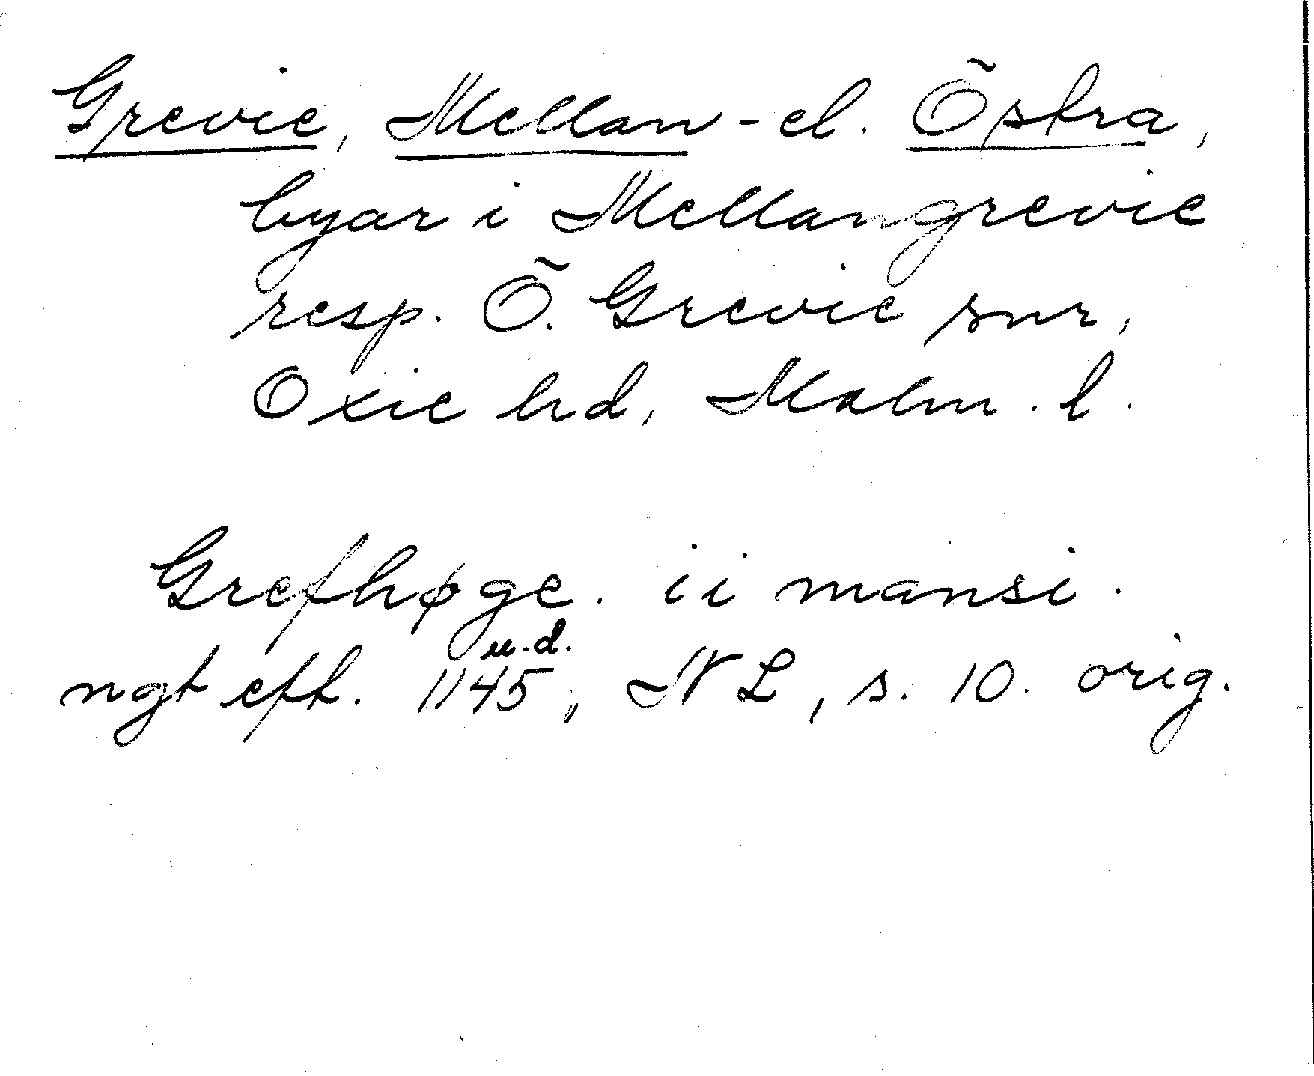 Grevie, Mellan- el. Östra,
byar i Mellangrevie
resp. Ö. Grevie snr,
Oxie hd, Malm. l.
Grefhøge. ii mansi.
u.d.
ngt eft. 1145, NL, s. 10. orig.